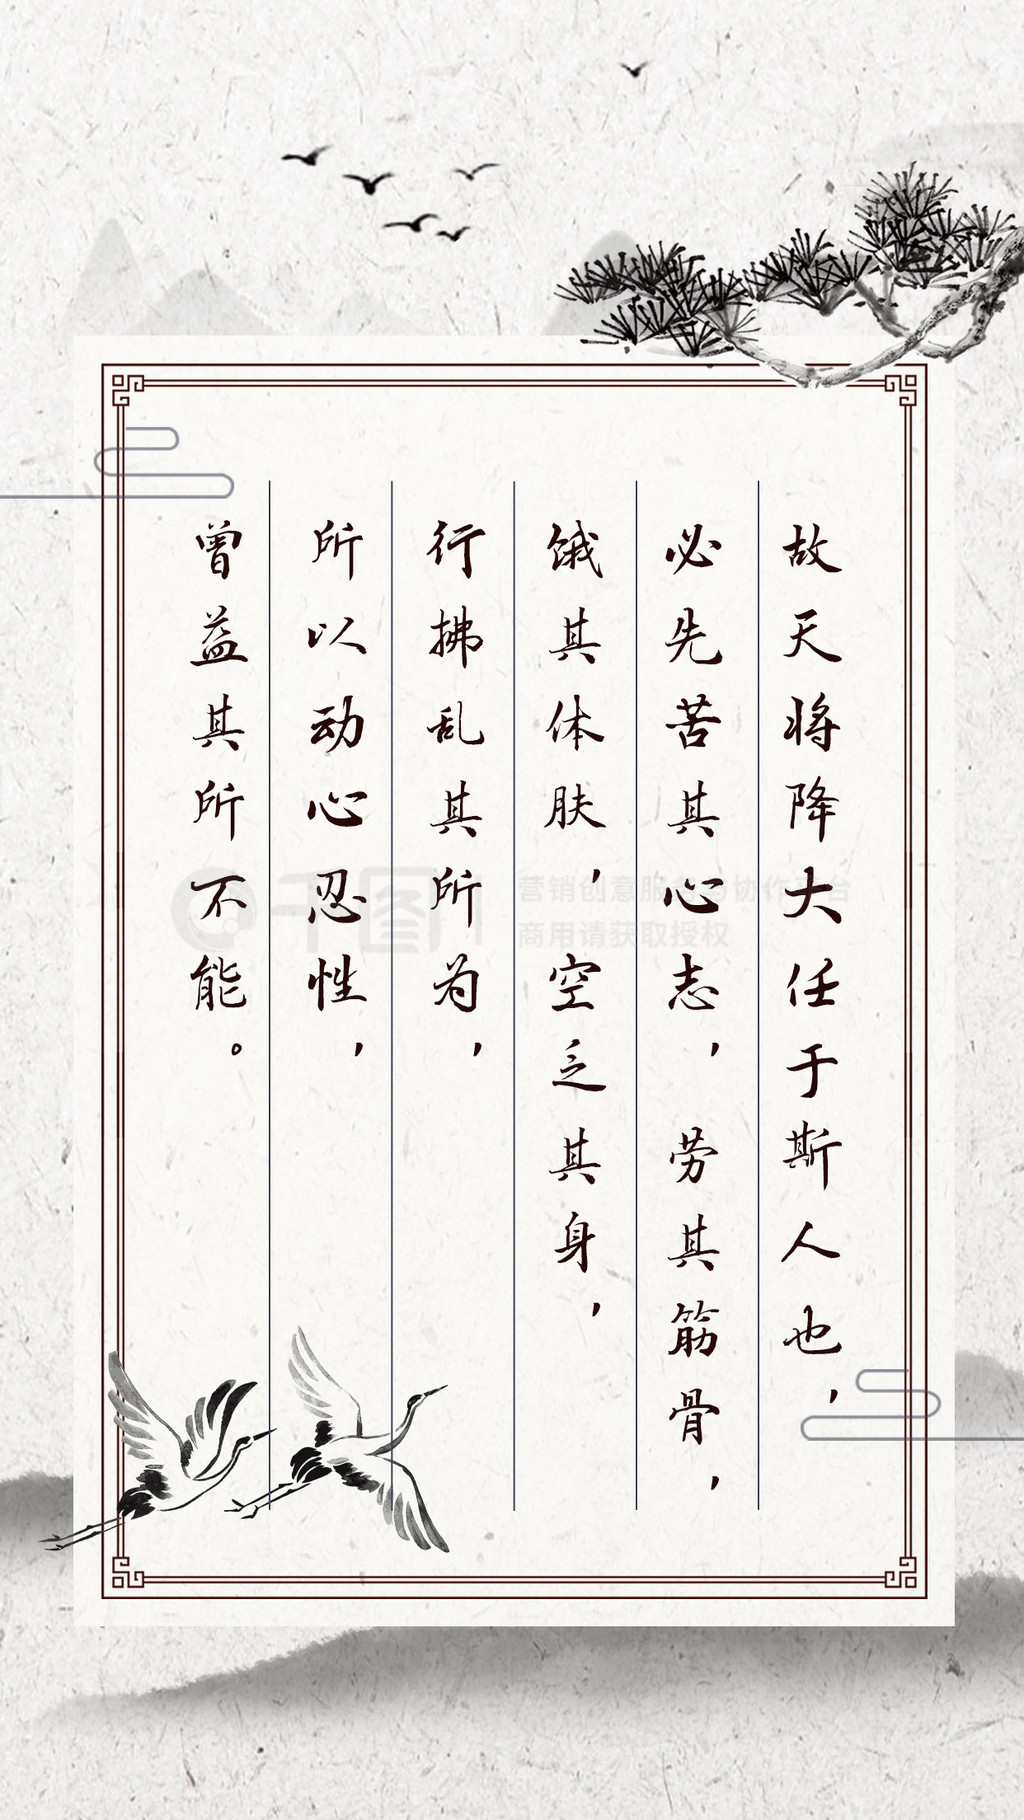 故天将降大任于斯人也，
必先苦其心志，劳其筋骨，
饿其体肤，空乏其身，
行拂乱其所为，
所以动心忍性，
曾益其所不能。
千图网
营销创意服务与协作平台
商用请获取授权